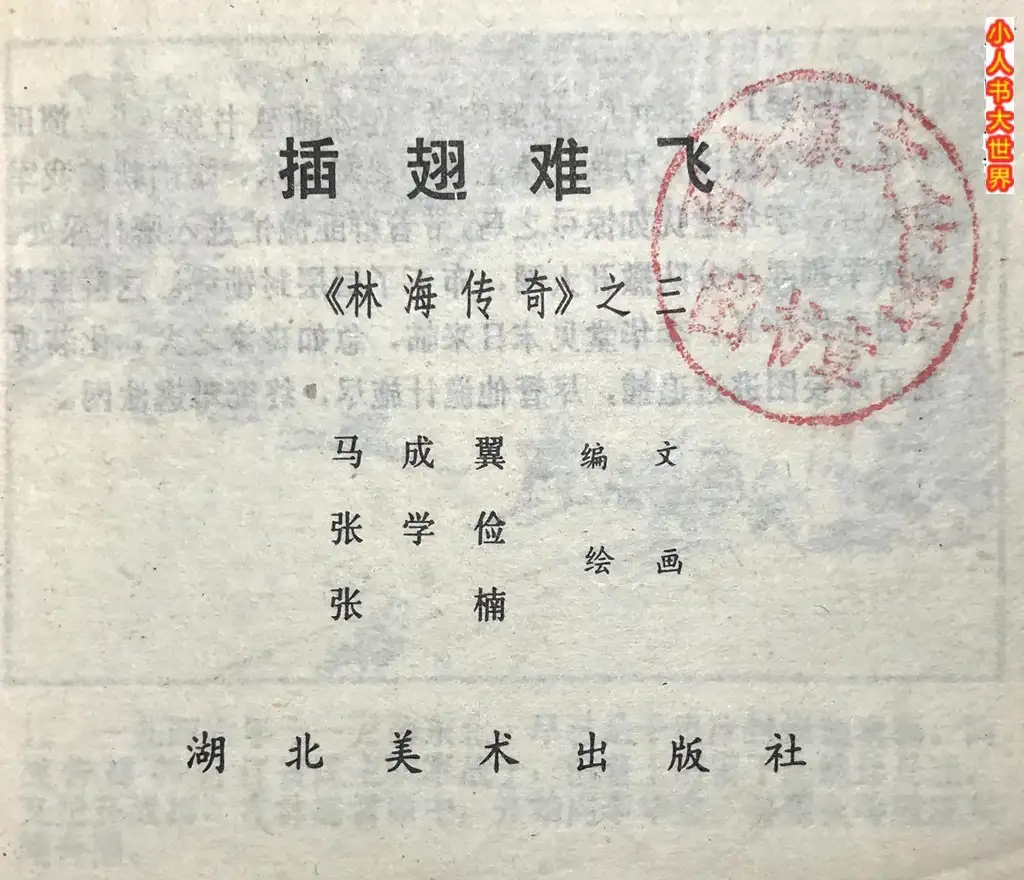 插翅难飞
《林海传奇》之三
马成翼 编文
张学俭
张楠 绘画
湖北美术出版社
图书章
小人书大世界